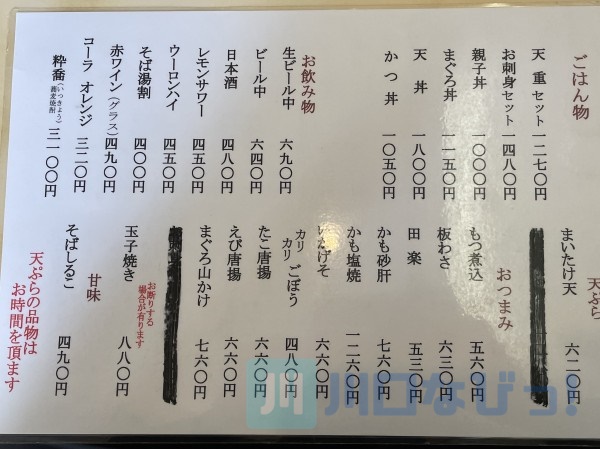 ごはん物
天重セット 一二七〇円
お刺身セット 一四八〇円
親子丼 一〇〇〇円
まぐろ丼 一一五〇円
天丼 一八〇〇円
かつ丼 一〇五〇円
お飲み物
生ビール中 六九〇円
ビール中 六四〇円
日本酒 四八〇円
レモンサワー 四五〇円
ウーロンハイ 四五〇円
そば湯割 四〇〇円
赤ワイン(グラス) 四九〇円
コーラ オレンジ 三二〇円
粋喬(いっきょう)蕎麦焼酎 三一〇〇円
天ぷら
まいたけ天 六二〇円
おつまみ
もつ煮込 五六〇円
板わさ 六三〇円
田楽 五三〇円
かも砂肝 七六〇円
かも塩焼 一二六〇円
いかげそ 六六〇円
カリカリごぼう 四八〇円
たこ唐揚 六六〇円
えび唐揚 六六〇円
まぐろ山かけ 七六〇円
お断りする
場合が有ります
玉子焼き 八八〇円
甘味
そばしるこ 四九〇円
天ぷらの品物は
お時間を頂ます
川 川口なびっ!